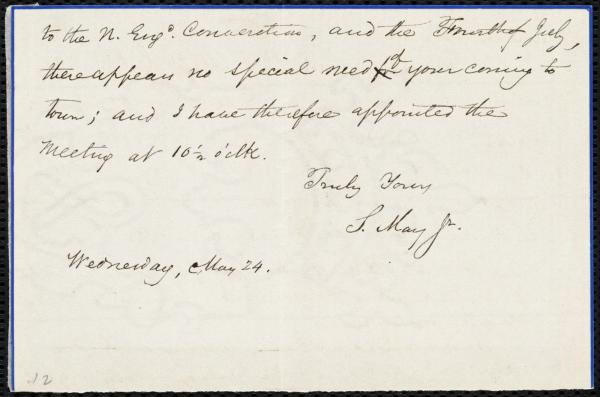 to the N. Engd. Convention, and the Fourth of July,
there appears no special need of your coming to
town; and I have therefore appointed the
Meeting at 10½ o'clk.
Truly Yours,
S. May Jr.
Wednesday, May 24.
.12